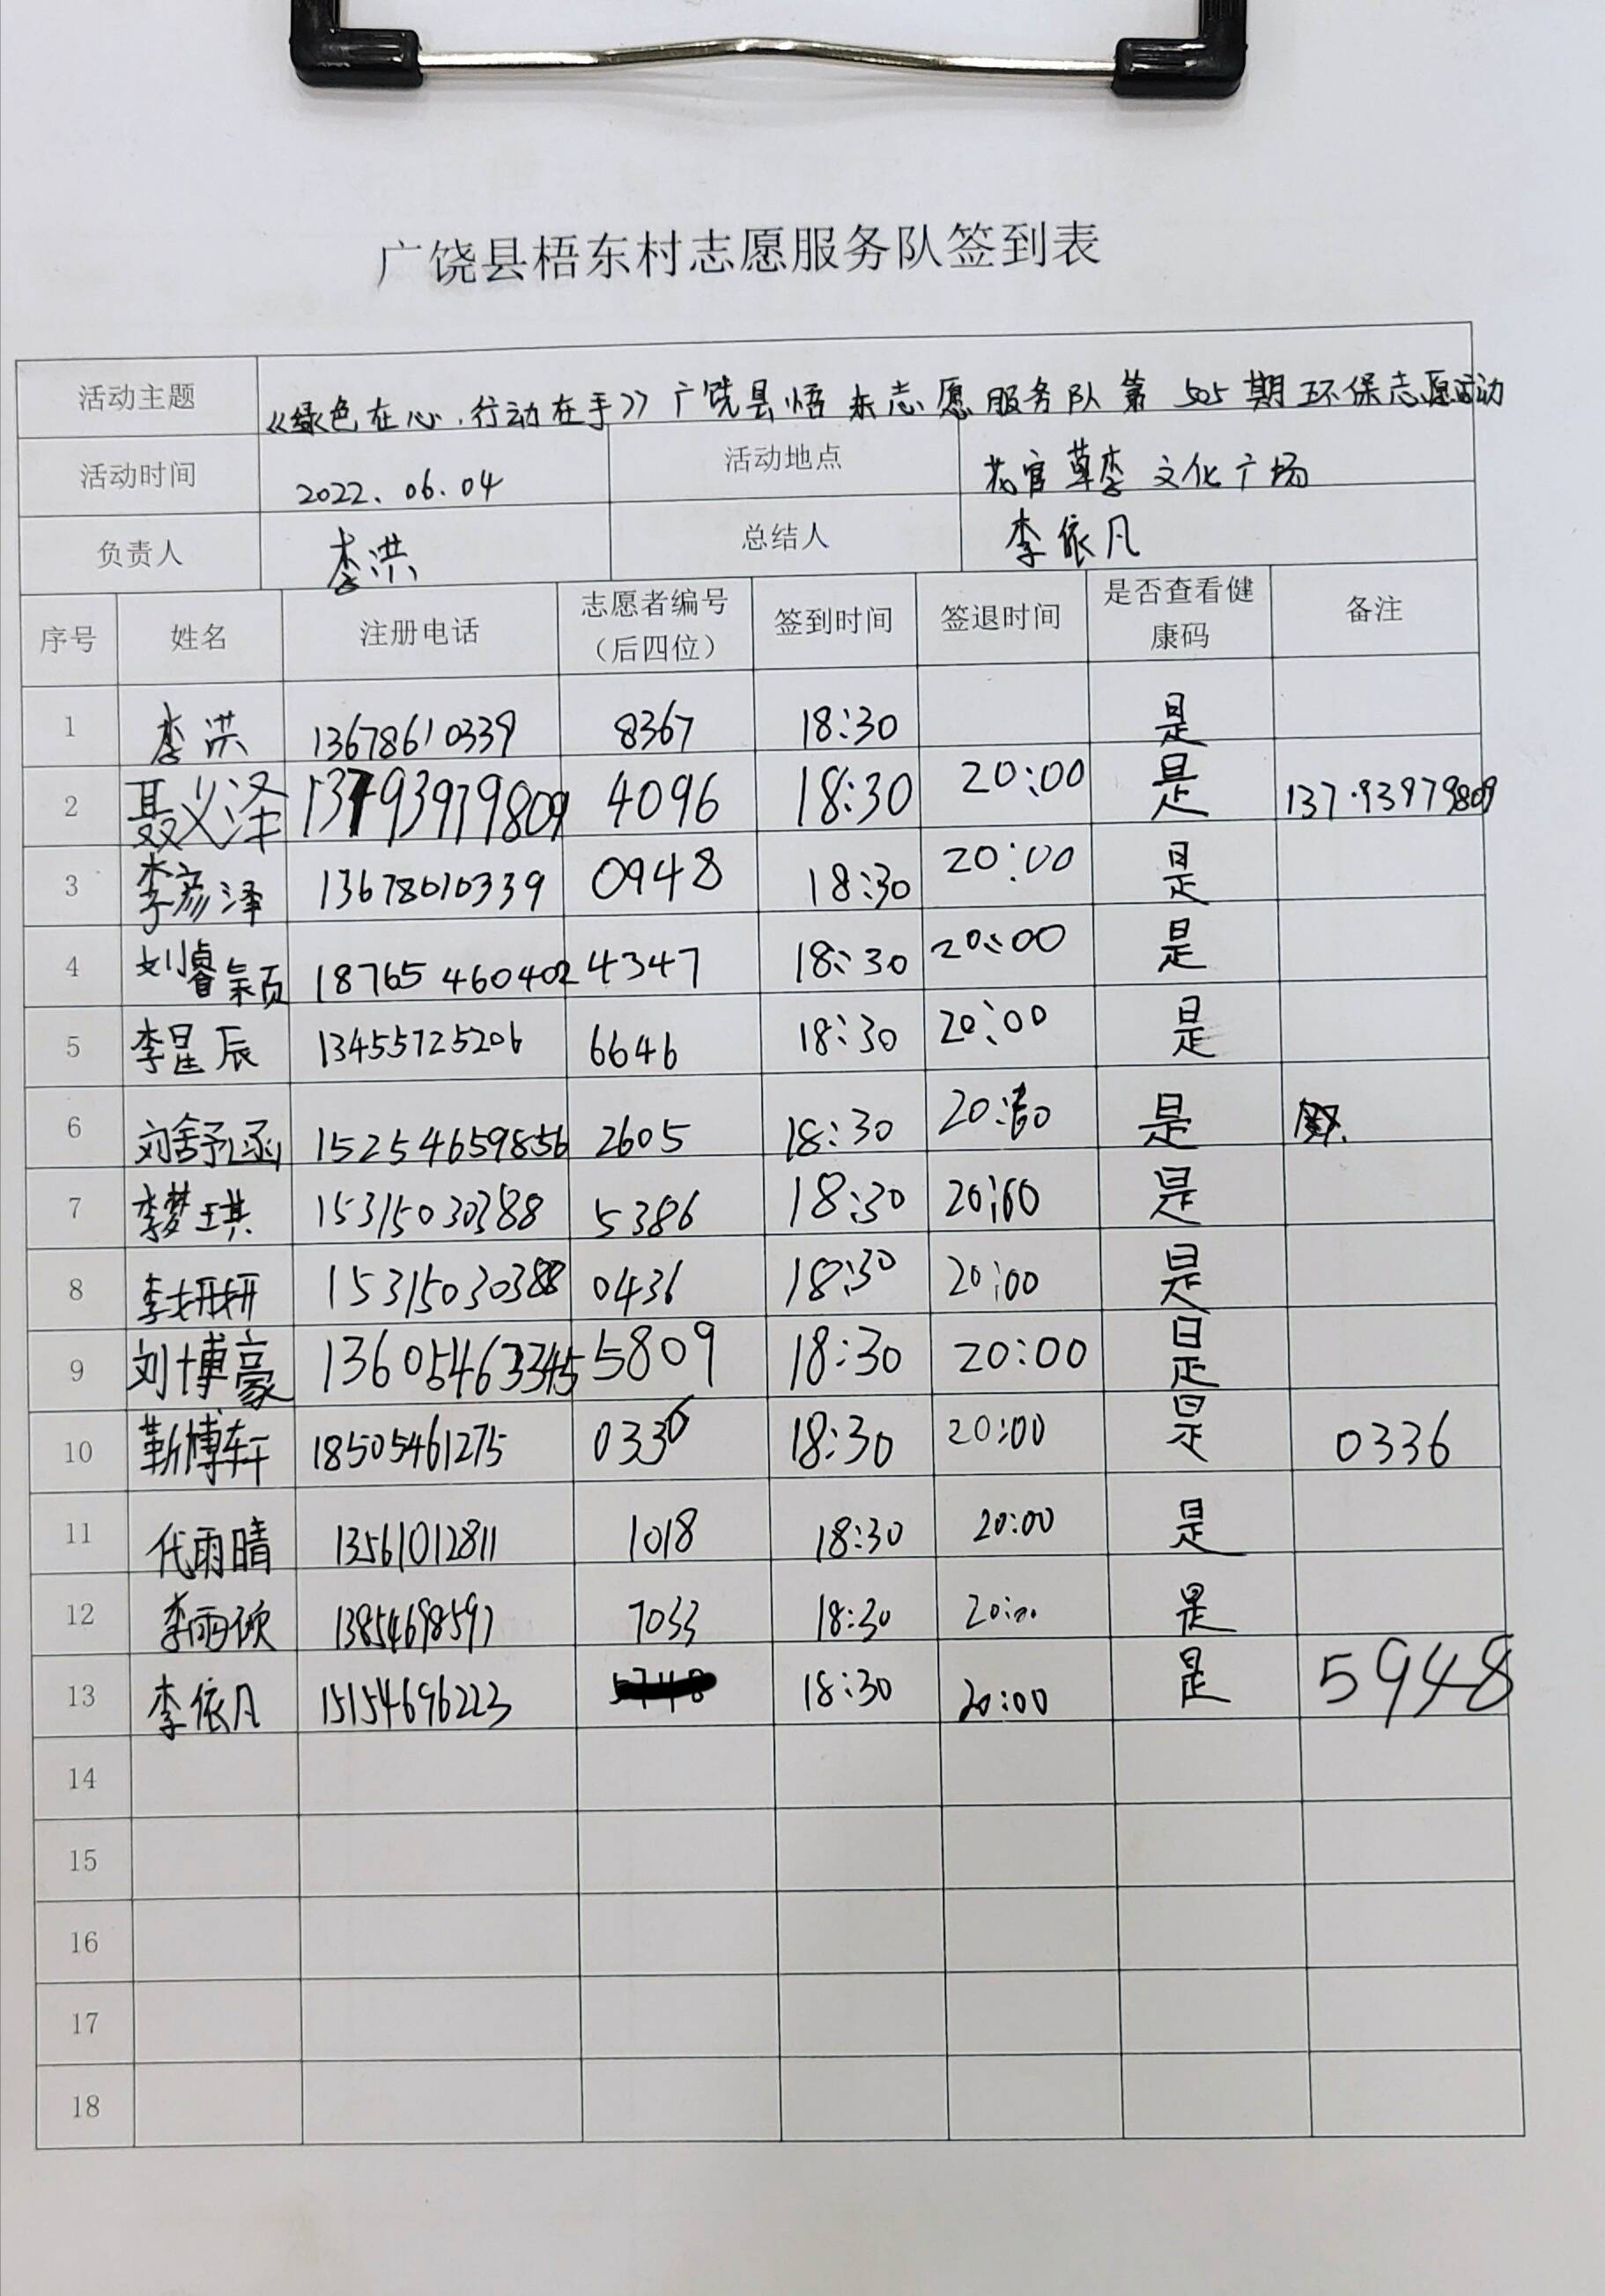 广饶县梧东村志愿服务队签到表
活动主题 《绿色在心,行动在手》广饶县悟东志愿服务队第505期环保志愿活动
活动时间 2022.06.04 活动地点 花官草李文化广场
负责人 李洪 总结人 李依凡
序号 姓名 注册电话 志愿者编号（后四位） 签到时间 签退时间 是否查看健康码 备注
1 李洪 13678610339 8367 18:30 是
2 聂义泽 13793979809 4096 18:30 20:00 是 137.93979809
3 李彦泽 13678610339 0948 18:30 20:00 是
4 刘睿颖 18765460402 4347 18:30 20:00 是
5 李星辰 13455725206 6646 18:30 20:00 是
6 刘舒涵 15254659856 2605 18:30 20:00 是
7 李梦琪 15315030388 5386 18:30 20:00 是
8 李妍妍 15315030388 0436 18:30 20:00 是
9 刘博豪 13605463345 5809 18:30 20:00 是
10 靳博轩 18505461275 0336 18:30 20:00 是 0336
11 代雨晴 13561012811 1018 18:30 20:00 是
12 李雨 13854698597 7033 18:30 20:00 是
13 李依凡 15154696223 18:30 20:00 是 5948
14
15
16
17
18